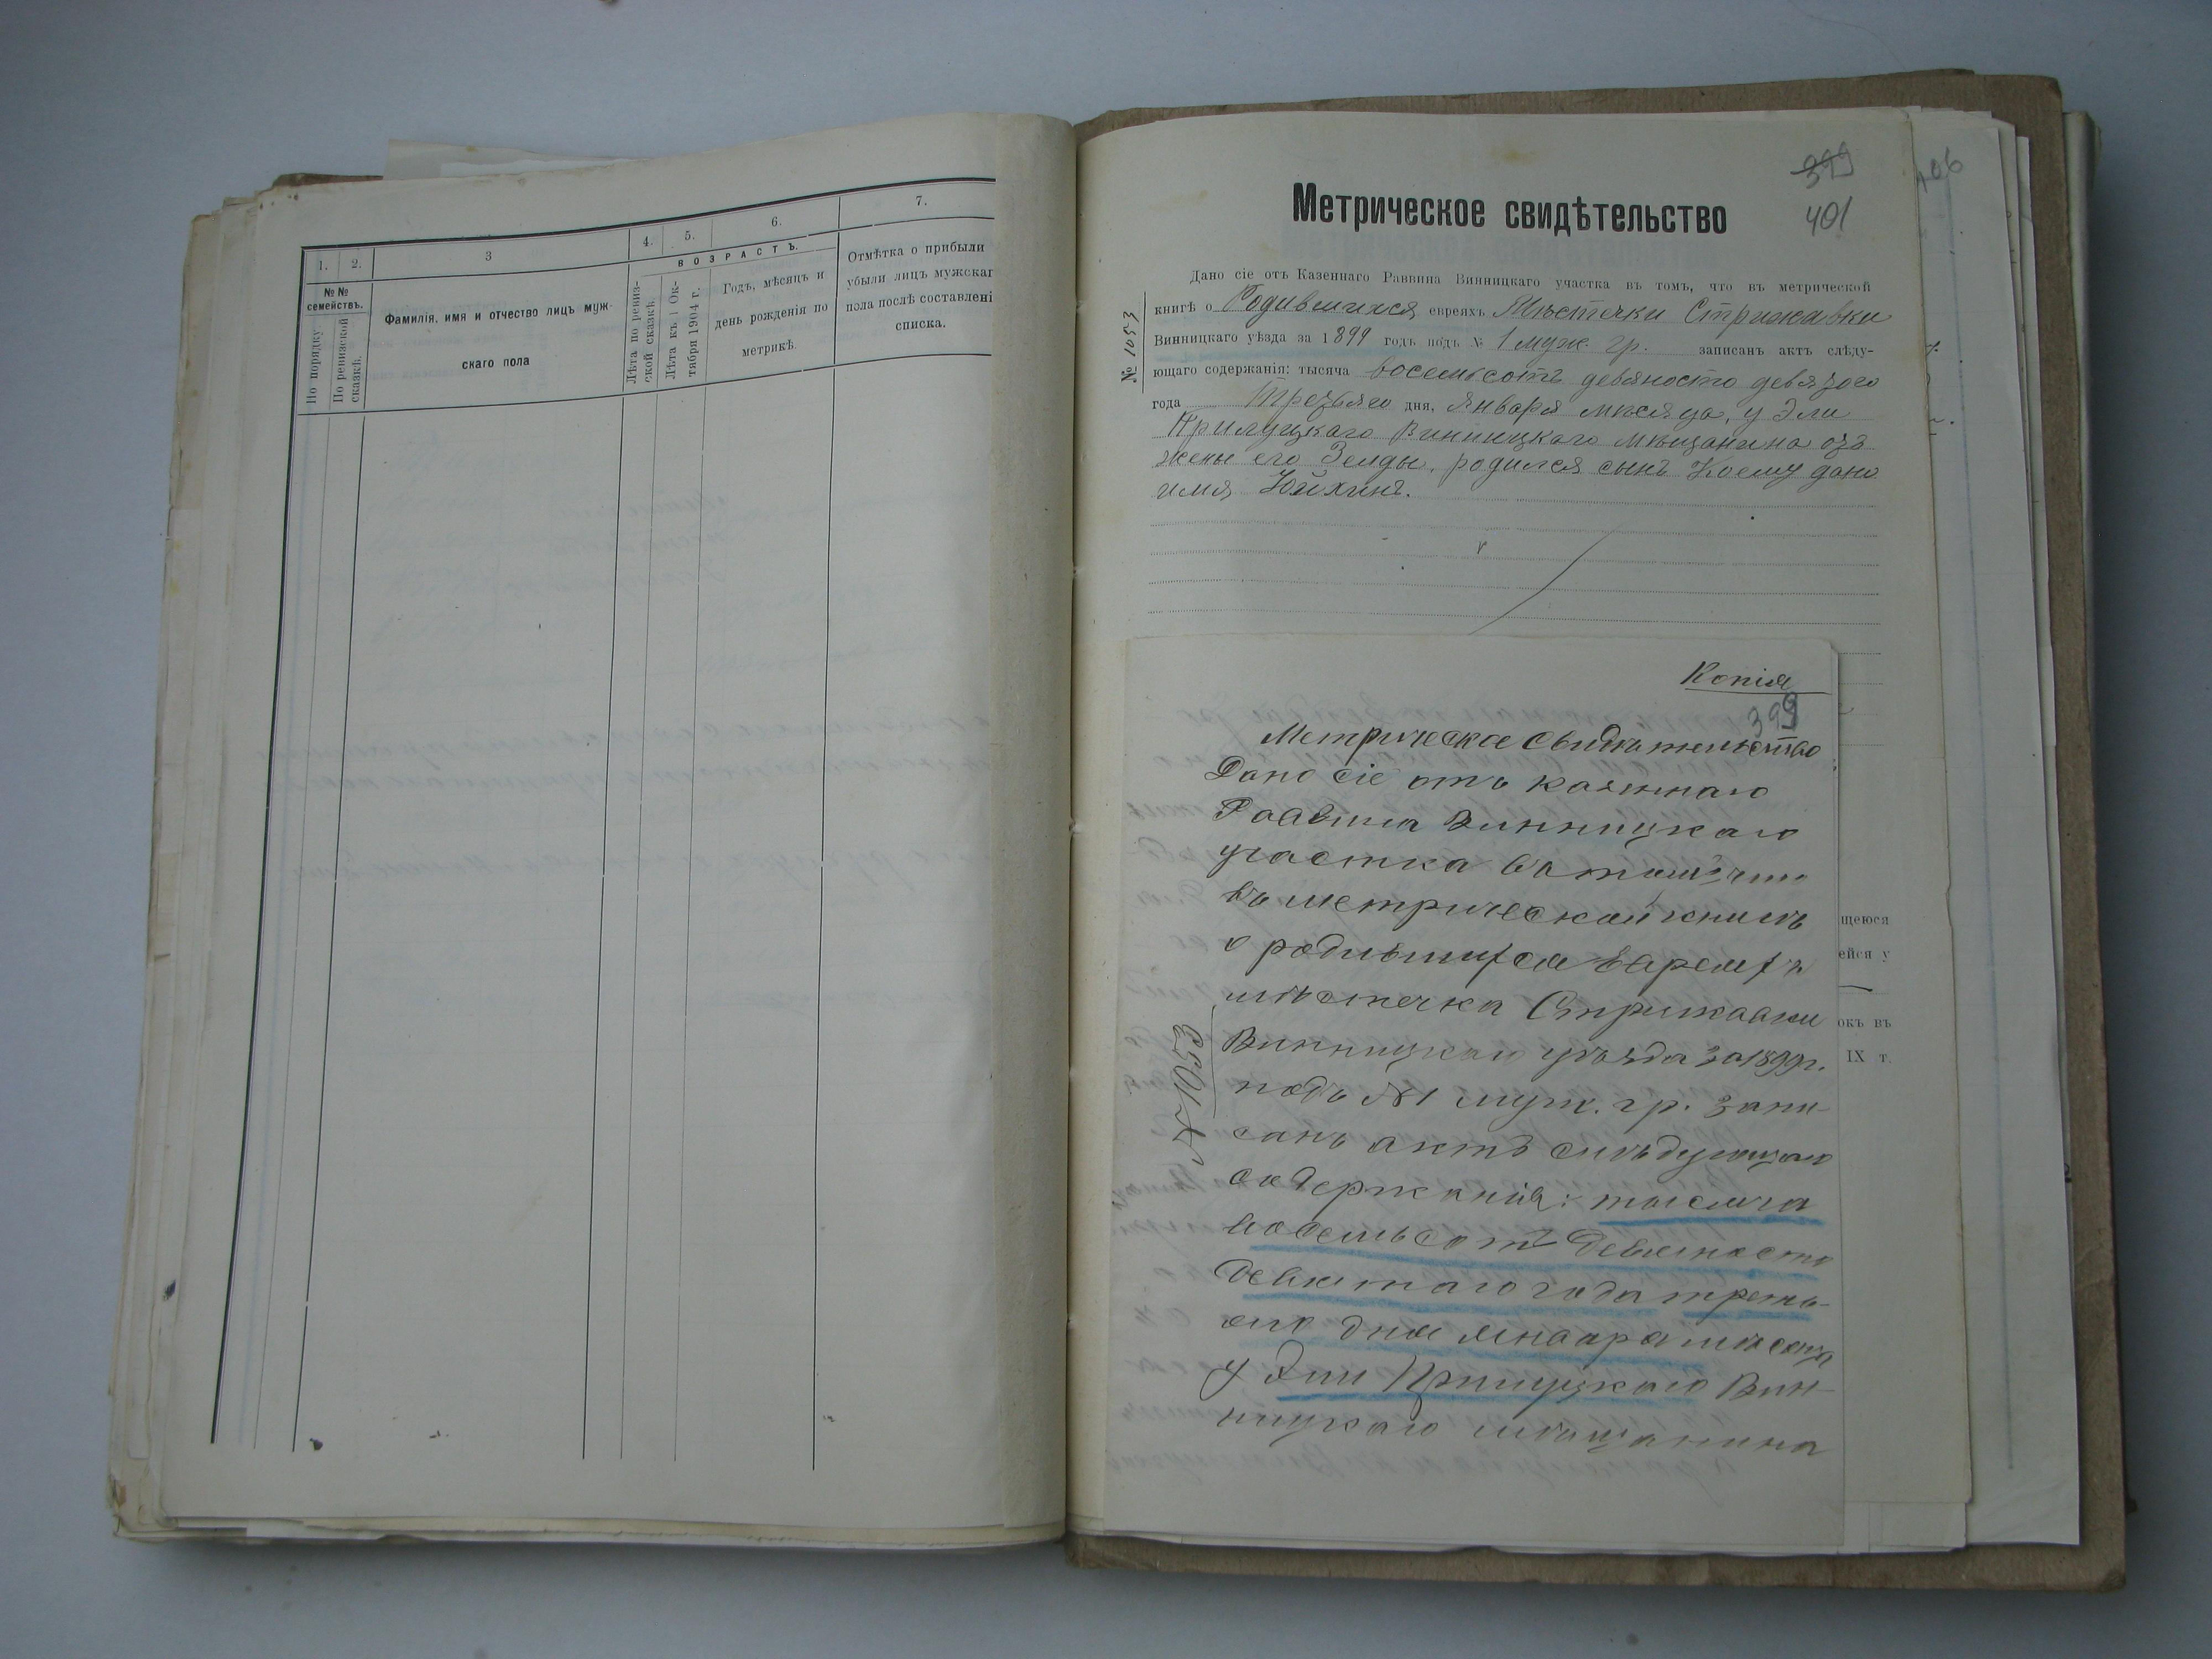 1.
2.
3
4.
5.
6.
7.
№№ семействъ.
По порядку
По ревизской сказкѣ.
Фамилія, имя и отчество лицъ муж-
скаго пола
ВОЗРАСТЪ.
Лѣта по ревиз-
ской сказкѣ.
Лѣта къ 1 Ок-
тября 1904 г.
Годъ, мѣсяцъ и
день рожденія по
метрикѣ.
Отмѣтка о прибыли
убыли лицъ мужскаг
пола послѣ составлені
списка.
399
401
406
Метрическое свидѣтельство
№ 1053
Дано сіе отъ Казеннаго Раввина Винницкаго участка въ томъ, что въ метрической
книгѣ о Родившихся евреяхъ Мѣстечки Стрижавки
Винницкаго уѣзда за 1899 годъ подъ № 1 муж. гр. записанъ актъ слѣду-
ющаго содержанія: тысяча восемьсотъ девяносто девятого
года Третьяго дня, Января мѣсяца, у Эли
Прилуцкаго Винницкаго мѣщанина отъ
жены его Зелды, родился сынъ Коему дано
имя Хаихинъ.
Копія
399
Метрическое Свидѣтельство
Дано сіе отъ казеннаго
Раввина Винницкаго
участка въ томъ, что
въ метрической книгѣ
о родившихся Евреяхъ
мѣстечка Стрижавки
Винницкаго уѣзда за 1899 г.
подъ №1 муж. гр. запи-
санъ актъ слѣдующаго
содержанія: тысяча
восемьсотъ девяносто
девятаго года треть-
яго дня января мѣсяца
у Эли Прилуцкаго Вин-
ницкаго мѣщанина
№ 1053
щеюся
ейся у
окъ въ
IX т.